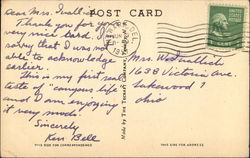 POST CARD
Dear Mrs.
Thank you for your
very nice card. I'm
sorry that I was not
able to acknowledge
earlier.
This is my first real
taste of "campus life"
and I am enjoying
it very much.
Sincerely
Ken Bell
THIS SIDE FOR CORRESPONDENCE
Mrs. W.
1638 Victoria Ave.
Lakewood 7
Ohio
THIS SIDE FOR ADDRESS